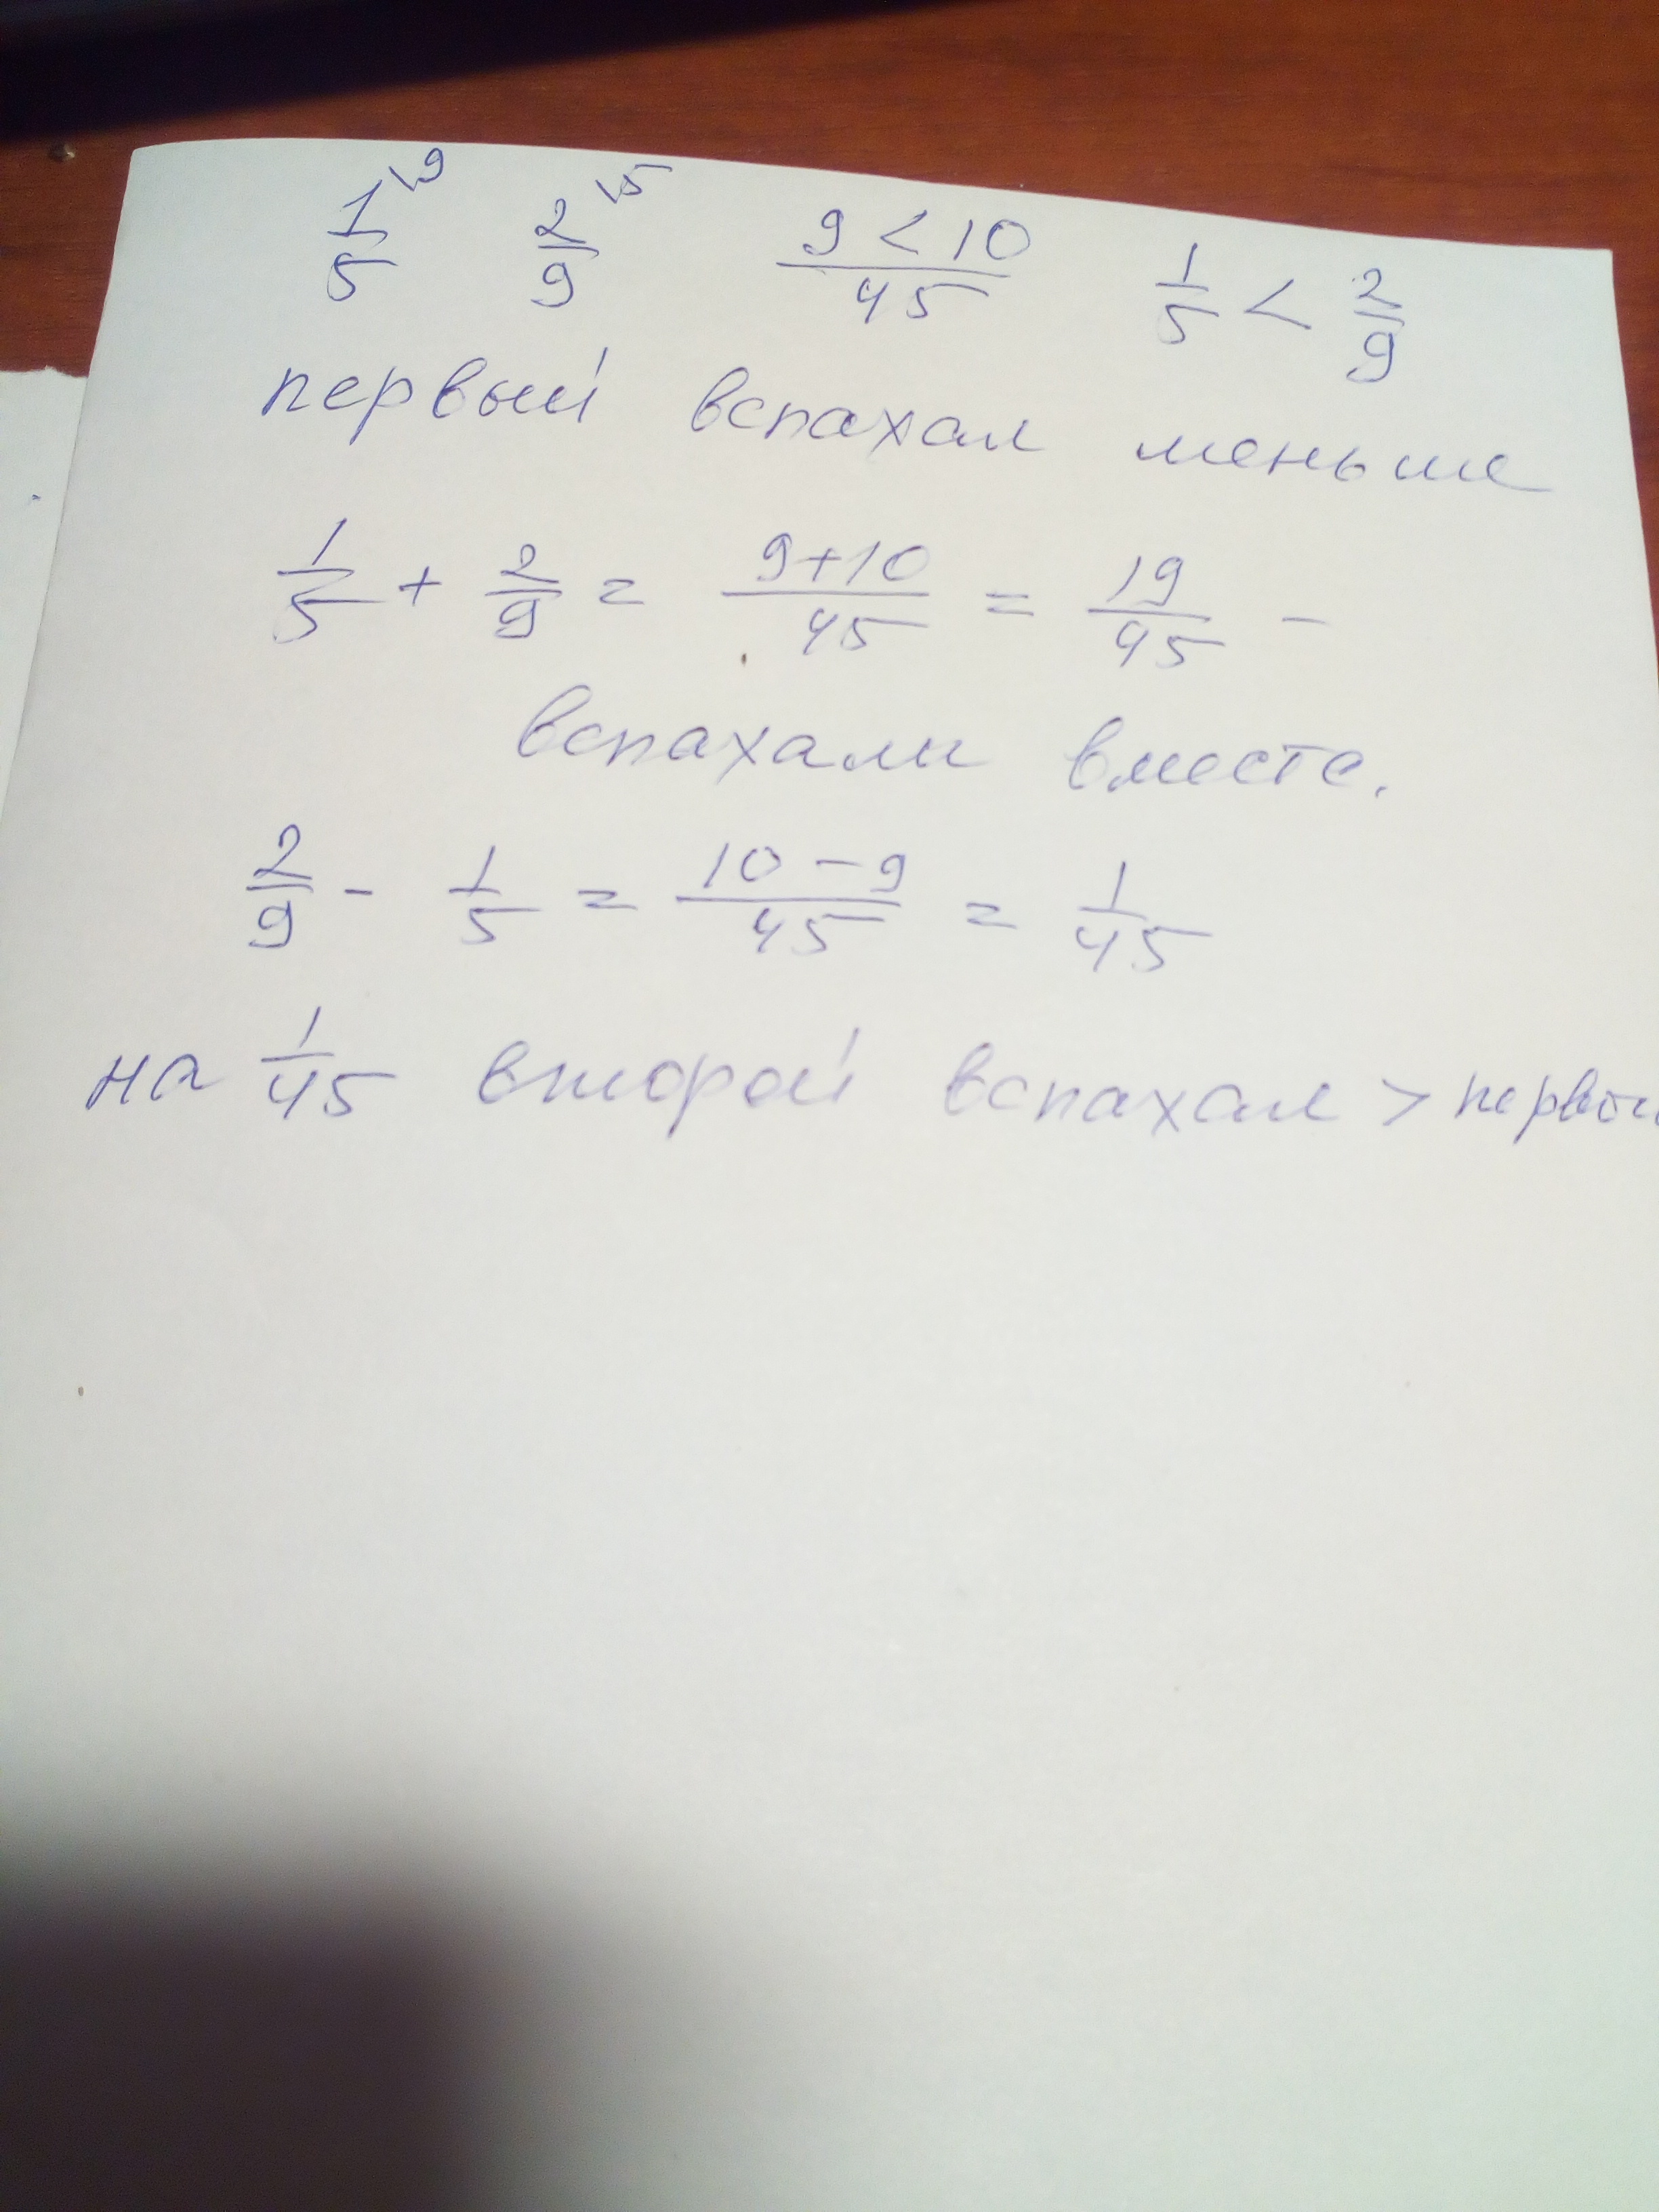 1/5 \9 2/9 \5 9 < 10 / 45 1/5 < 2/9
первый вспахал меньше
1/5 + 2/9 = 9+10/45 = 19/45 -
вспахали вместе.
2/9 - 1/5 = 10-9/45 = 1/45
на 1/45 второй вспахал >